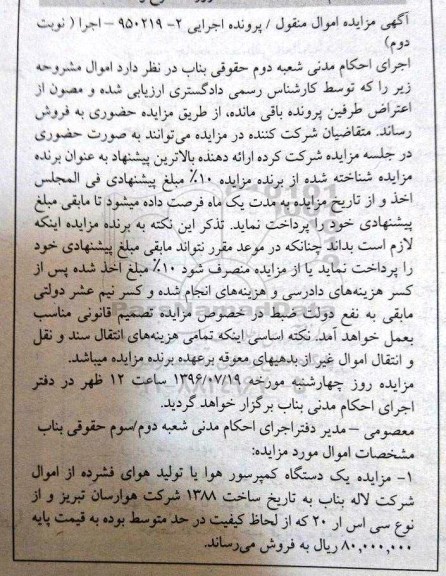 آگهی مزایده اموال منقول / پرونده اجرایی ۲- ۹۵۰۲۱۹ – اجرا ( نوبت
دوم)
اجرای احکام مدنی شعبه دوم حقوقی بناب در نظر دارد اموال مشروحه
زیر را که توسط کارشناس رسمی دادگستری ارزیابی شده و مصون از
اعتراض طرفین پرونده باقی مانده، از طریق مزایده حضوری به فروش
رساند. متقاضیان شرکت کننده در مزایده می‌توانند به صورت حضوری
در جلسه مزایده شرکت کرده ارائه دهنده بالاترین پیشنهاد به عنوان برنده
مزایده شناخته شده از برنده مزایده ۱۰٪ مبلغ پیشنهادی فی المجلس
اخذ و از تاریخ مزایده به مدت یک ماه فرصت داده میشود تا مابقی مبلغ
پیشنهادی خود را پرداخت نماید. تذکر این نکته به برنده مزایده اینکه
لازم است بداند چنانکه در موعد مقرر نتواند مابقی مبلغ پیشنهادی خود
را پرداخت نماید یا از مزایده منصرف شود ۱۰٪ مبلغ اخذ شده پس از
کسر هزینه‌های دادرسی و هزینه‌های انجام شده و کسر نیم عشر دولتی
مابقی به نفع دولت ضبط در خصوص مزایده تصمیم قانونی مناسب
بعمل خواهد آمد. نکته اساسی اینکه تمامی هزینه‌های انتقال سند و نقل
و انتقال اموال غیر از بدهیهای معوقه برعهده برنده مزایده میباشد.
مزایده روز چهارشنبه مورخه ۱۳۹۶/۰۷/۱۹ ساعت ۱۲ ظهر در دفتر
اجرای احکام مدنی بناب برگزار خواهد گردید.
معصومی – مدیر دفتراجرای احکام مدنی شعبه دوم/سوم حقوقی بناب
مشخصات اموال مورد مزایده:
۱- مزایده یک دستگاه کمپرسور هوا یا تولید هوای فشرده از اموال
شرکت لاله بناب به تاریخ ساخت ۱۳۸۸ شرکت هوارسان تبریز و از
نوع سی اس ار ۲۰ که از لحاظ کیفیت در حد متوسط بوده به قیمت پایه
۸۰,۰۰۰,۰۰۰ ریال به فروش می‌رساند.